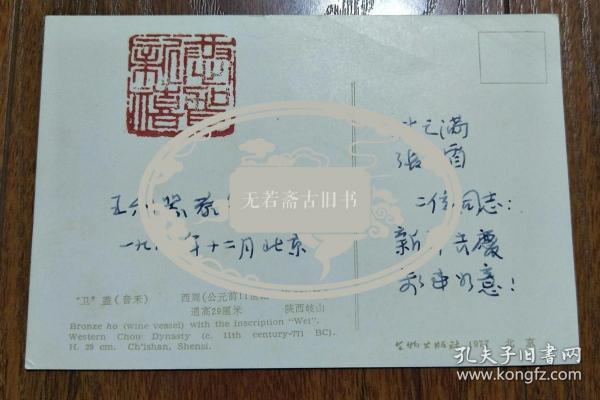 恭贺新禧
张霄
二位同志：
新年吉慶
万事如意！
一九 年十二月北京
无若斋古旧书
"卫"盉（音禾） 西周（公元前11世纪
通高29厘米 陕西岐山
Bronze ho (wine vessel) with the inscription "Wei".
Western Chou Dynasty (c. 11th century-771 BC).
H. 29 cm. Ch'ishan, Shensi.
文物出版社 1977 北京
孔夫子旧书网
www.kongfz.com